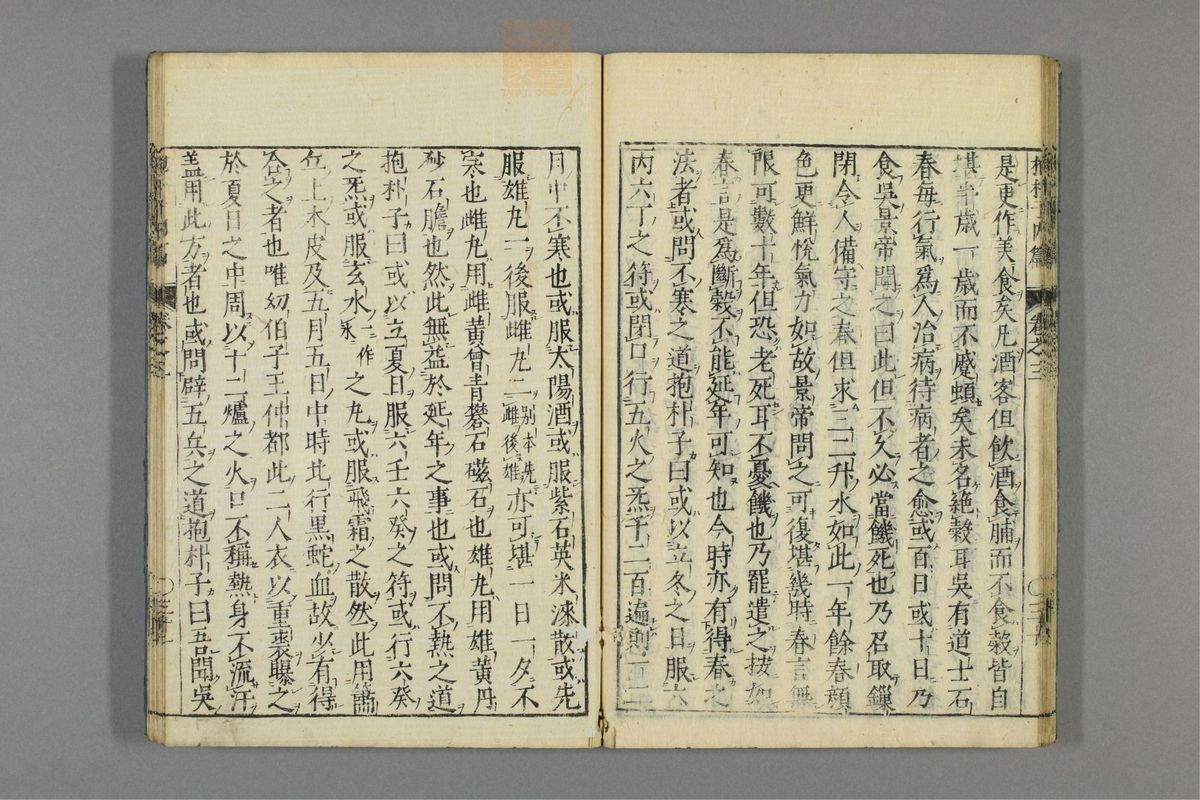 是更作美食矣凡酒客但飲酒食脯而不食穀皆自
堪半歲一歲而不蹙頓矣未名絕穀耳吳有道士石
春每行氣爲人治病待病者之愈或百日或十日乃
食吳景帝聞之曰此但不久必當饑死也乃召取鏁
閉令人備守之春但求三二升水如此一年餘春顔
色更鮮悅氣力如故景帝問之可復堪幾時春言無
限可數十年但恐老死耳不憂饑也乃罷遣之按如
春言是爲斷穀不能延年可知也今時亦有得春之
法者或問不寒之道抱朴子曰或以立冬之日服六
丙六丁之符或閉口行五火之炁千二百遍則十二
月中不寒也或服太陽酒或服紫石英朱漆散或先
服雄丸一後服雌丸二別本先雌後雄亦可堪一日一夕不
寒也雌丸用雌黃曾青礬石磁石也雄丸用雄黃丹
砂石膽也然此無益於延年之事也或問不熱之道
抱朴子曰或以立夏日服六壬六癸之符或行六癸
之炁或服玄水之丸或服飛霜之散然此用蕭
丘上木皮及五月五日中時北行黑蛇血故少有得
合之者也唯幼伯子王仲都此二人衣以重裘曝之
於夏日之中周以十二爐之火口不稱熱身不流汗
盖用此方者也或問辟五兵之道抱朴子曰吾聞吳